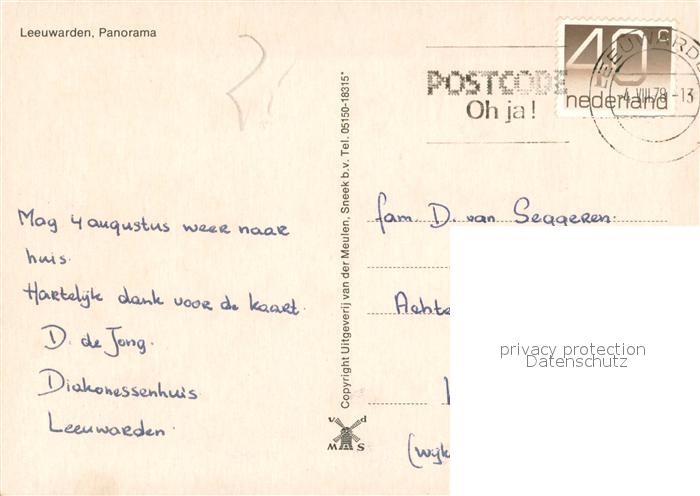 Leeuwarden, Panorama
40c
nederland
LEEUWARDEN
-4.VIII.78.-13
POSTCODE
Oh ja!
Mag 4 augustus weer naar
huis.
Hartelijk dank voor de kaart.
D. de Jong.
Diakonessenhuis
Leeuwarden.
Copyright Uitgeverij van der Meulen, Sneek b.v. Tel. 05150-18315*
v d
M S
fam. D. van Seggeren.
Achte
(wijk
privacy protection
Datenschutz